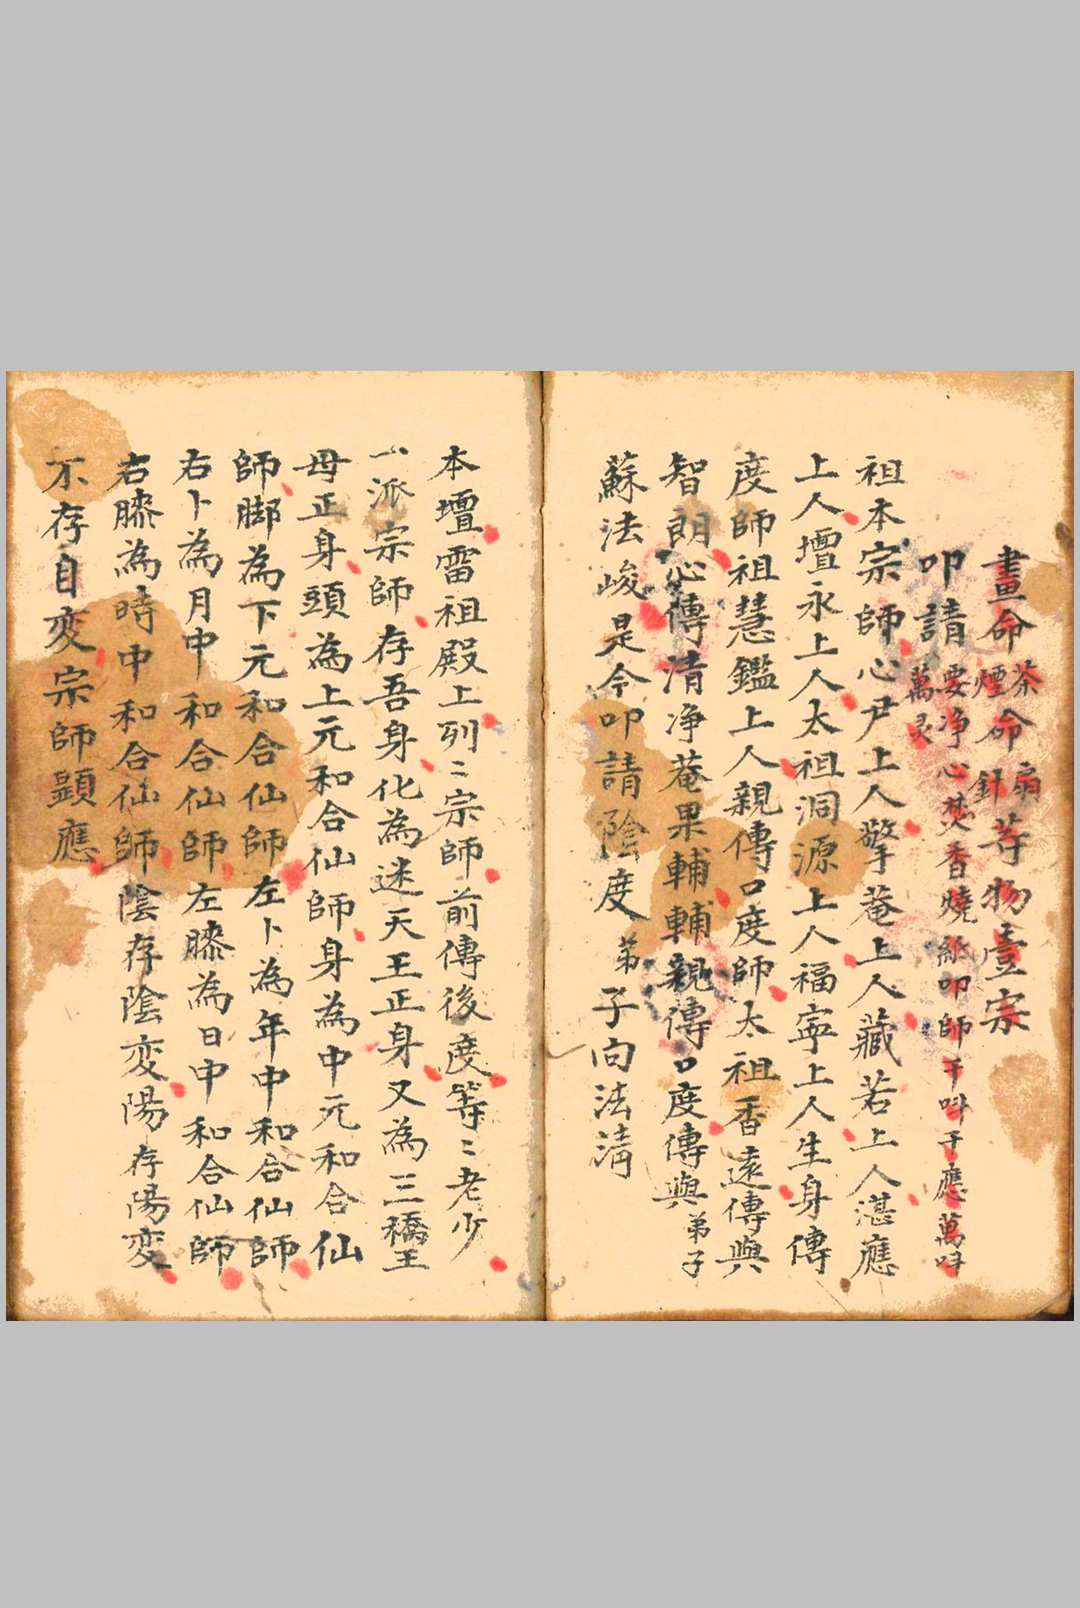 畫命茶煙命扇針等物壹宗
叩請要净心焚香燒紙叩師千呌千應萬呌萬灵
祖本宗師心尹上人擎菴上人藏若上人湛應
上人壇永上人太祖洞源上人福寜上人生身傳
度師祖慧鑑上人親傳口度師太祖香遠傳與
智朗心傳清净菴果輔輔親傳口度傳與弟子
蘇法峻是今叩請陰度弟子向法清
本壇雷祖殿上列〻宗師前傳後度等〻老少
一派宗師存吾身化為迷天王正身又為三橋王
母正身頭為上元和合仙師身為中元和合仙
師脚為下元和合仙師左卜為年中和合仙師
右卜為月中和合仙師左膝為日中和合仙師
右膝為時中和合仙師陰存陰变陽存陽变
不存自变宗師顕應